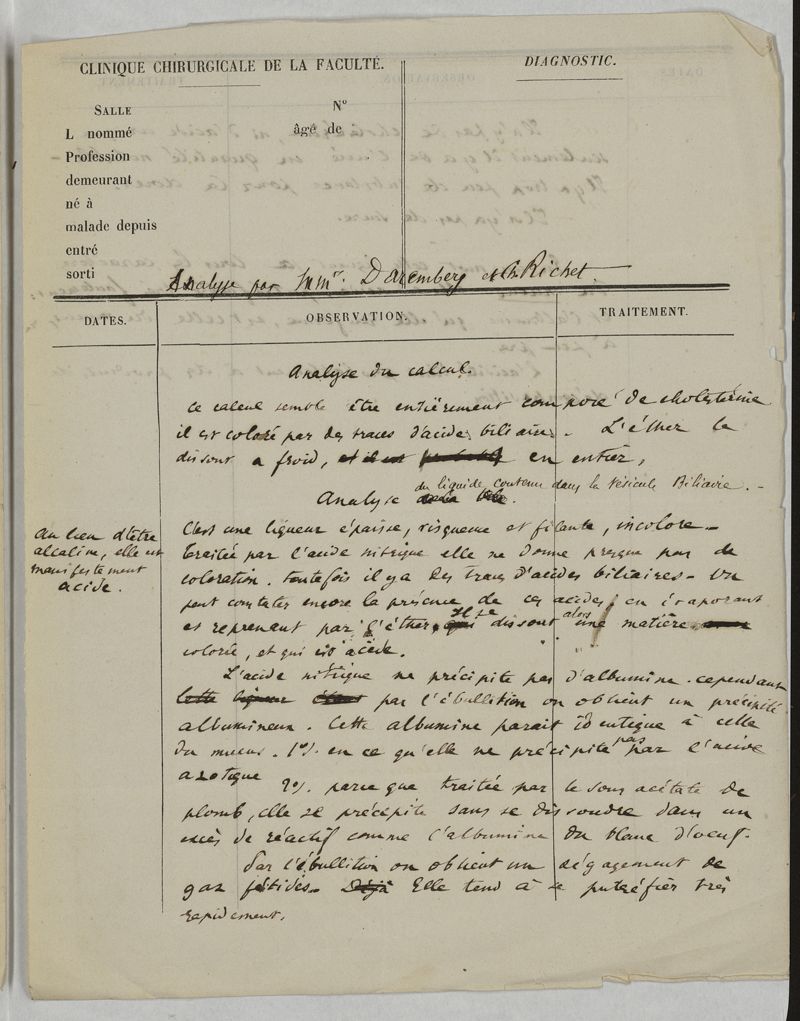 CLINIQUE CHIRURGICALE DE LA FACULTÉ.
DIAGNOSTIC.
SALLE Nº
L nommé âgé de
Profession
demeurant
né à
malade depuis
entré
sorti
Analyse par Mmrs. Daremberg et Ch Richet.
DATES. OBSERVATION. TRAITEMENT.
Analyse du calcul.
Ce calcul semble être entièrement composé de cholestérine
il est coloré par des traces d'acides biliaires. L'éther le
dissout a froid, et il est en entier,
du liquide contenu dans la Vésicule Biliaire.
Analyse de la bile.
C'est une liqueur épaisse, visqueuse et filante, incolore.
Traitée par l'acide nitrique elle ne donne presque pas de
coloration. toutefois il y a des traces d'acides biliaires. On
peut constater encore la présence de ces acides, en évaporant
et reprenant par l'éther, qui Il se dissout alors une matière
colorée, et qui est acide.
Au lieu d'être
alcaline, elle est
manifestement
acide.
L'acide nitrique ne précipite pas d'albumine. cependant
Cette liqueur étant par l'ébullition on obtient un précipité
albumineux. Cette albumine parait identique à celle
du mucus. 1º/. en ce qu'elle ne précipite pas par l'acide
azotique
2º/. parce que traitée par le sous acétate de
plomb, elle se précipite sans se dissoudre dans un
excès de réactif comme l'albumine du blanc d'oeuf.
Par l'ébullition on obtient un dégagement de
gaz fétides. Déjà Elle tend à se putréfier très
rapidement.